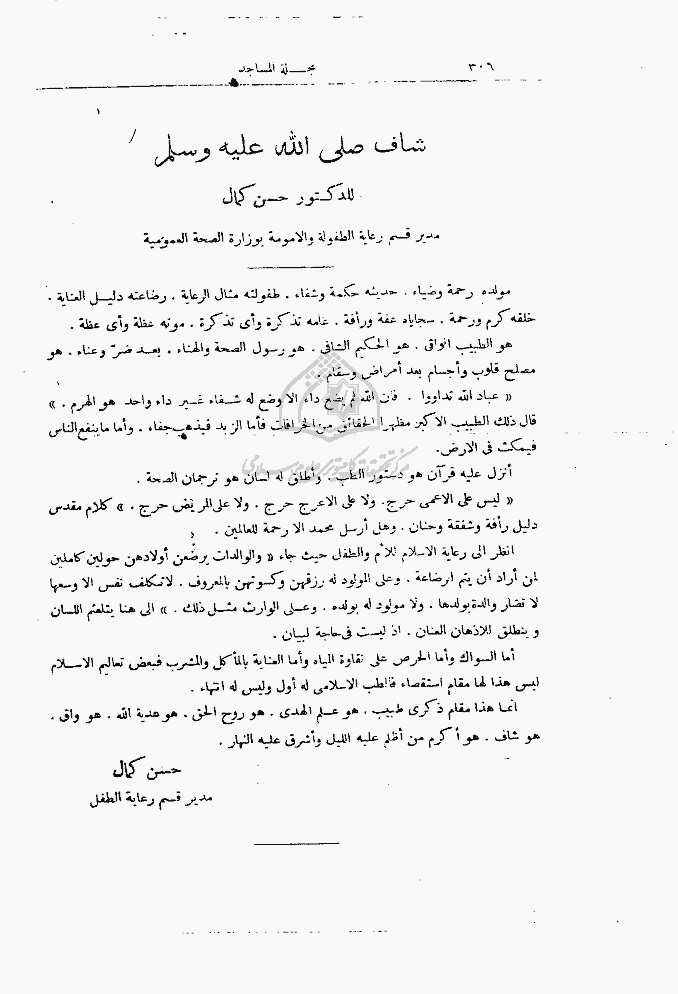 ٣٠٦ مجلة المساجد
شاف صلى الله عليه وسلم
للدكتور حسن كمال
مدير قسم رعاية الطفولة والامومة بوزارة الصحة العمومية
مولده رحمة وضياء . حديثه حكمة وشفاء . طفولته مثال الرعاية . رضاعته دليل العناية .
خلقه كرم ورحمة . سجاياه عفة ورأفة . عامه تذكرة وأى تذكرة . موته عظة وأى عظة .
هو الطبيب الواقى . هو الحكيم الشافى . هو رسول الصحة والهناء . بعد ضرّ وعناء . هو
مصلح قلوب وأجسام بعد أمراض وسقام .
« عباد الله تداووا . فان الله لم يضع داء الا وضع له شفاء غير داء واحد هو الهرم . »
قال ذلك الطبيب الأكبر مظهرا الحقائق من الخرافات فأما الزبد فيذهب جفاء . وأما ما ينفع الناس
فيمكث فى الارض.
أنزل عليه قرآن هو دستور الطب . وأطلق له لسان هو ترجمان الصحة .
« ليس على الاعمى حرج. ولا على الاعرج حرج . ولا على المريض حرج . » كلام مقدس
دليل رأفة وشفقة وحنان . وهل أرسل محمد الا رحمة للعالمين .
انظر الى رعاية الاسلام للأم والطفل حيث جاء « والوالدات يرضعن أولادهن حولين كاملين
لمن أراد أن يتم الرضاعة . وعلى المولود له رزقهن وكسوتهن بالمعروف . لا تكلف نفس الا وسعها
لا تضار والدة بولدها . ولا مولود له بولده . وعلى الوارث مثل ذلك . » الى هنا يتلعثم اللسان
و ينطلق للاذهان العنان . اذ ليست فى حاجة لبيان .
أما السواك وأما الحرص على نقاوة المياه وأما العناية بالمأكل والمشرب فبعض تعاليم الاسلام
ليس هذا لها مقام استقصاء فالطب الاسلامى له أول وليس له انتهاء .
انما هذا مقام ذكرى طبيب . هو علم الهدى . هو روح الحق . هو هدية الله . هو واق .
هو شاف . هو أكرم من أظلم عليه الليل وأشرق عليه النهار .
حسن كمال
مدير قسم رعاية الطفل